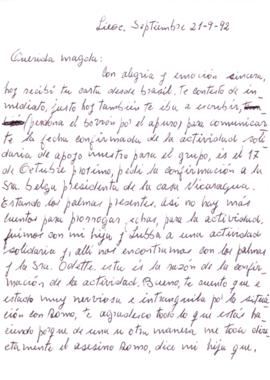 Lieac, Septiembre 21-9-92
Querida magda:
Con alegría y emoción sincera,
hoy recibí tu carta desde brasil. te contesto de in-
mediato, justo hoy también te iba a escribir,
(perdona el borrón por el apuro) para comunicar-
te la fecha confirmada de la actividad soli-
daria de apoyo nuestro para el grupo, es el 17
de Octubre proximo, pedi la confirmación a la
Sra. Belga presidenta de la casa Nicaragua.
Estando los palmas presentes, asi no hay mas
cuentos para prorrogar fechas, para la actividad.
fuimos con mi hija y Lubba a una actividad
solidaria y, alli nos encontramos con los palmas
y la Sra. Odette. esta es la razón de la confir-
mación de la actividad. Bueno, te cuento que e
estado muy nerviosa e intranquila por la situa-
ción con Romo, te agradezco todo lo que estás ha-
ciendo porque de una u otra manera me toca dire-
ctamente el asesino Romo, dice mi hija que,